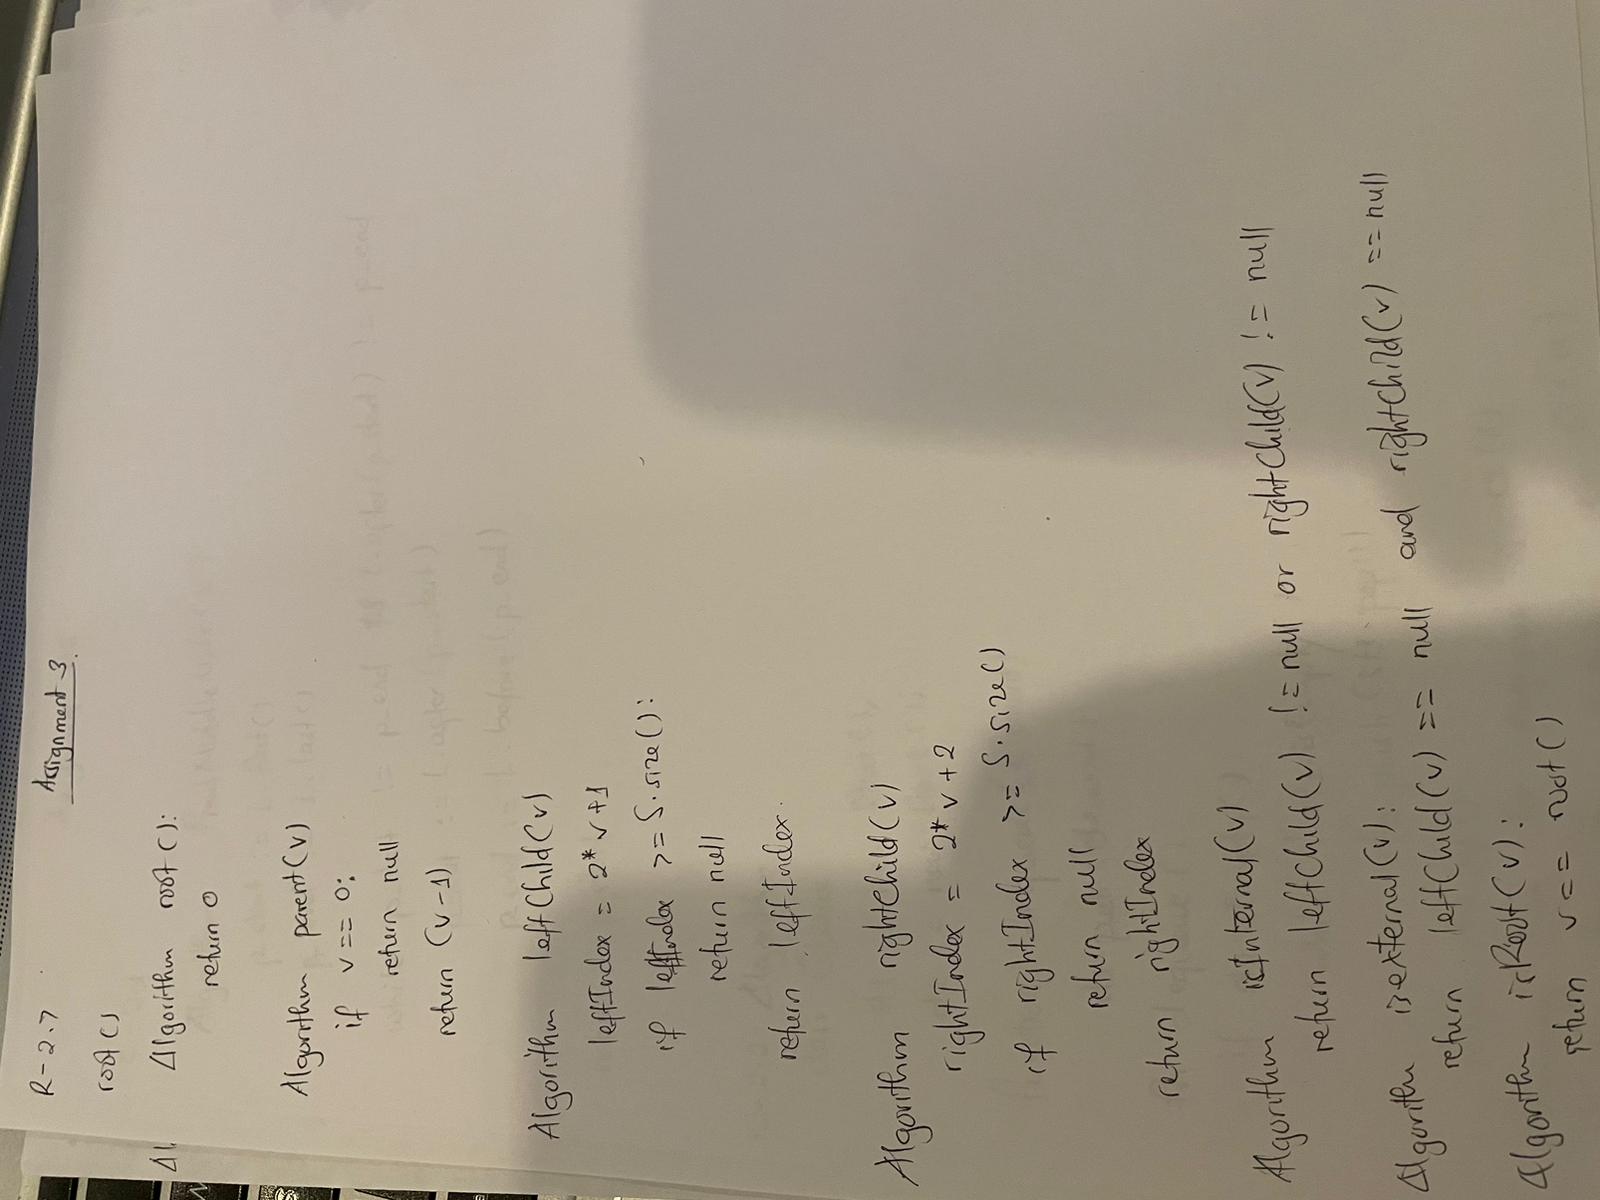 R-2.7
Assignment 3.
root()
Algorithm root():
return 0
Algorithm parent(v)
if v == 0:
return null
return (v-1)
Algorithm leftChild(v)
leftIndex = 2* v+1
if leftIndex >= S.size():
return null
return leftIndex.
Algorithm rightChild(v)
rightIndex = 2* v + 2
if rightIndex >= S.size()
return null
return rightIndex
Algorithm isInternal(v)
return leftChild(v) != null or rightChild(v) != null
Algorithm isexternal(v):
return leftChild(v) == null and rightChild(v) == null
Algorithm isRoot(v):
return v == root()